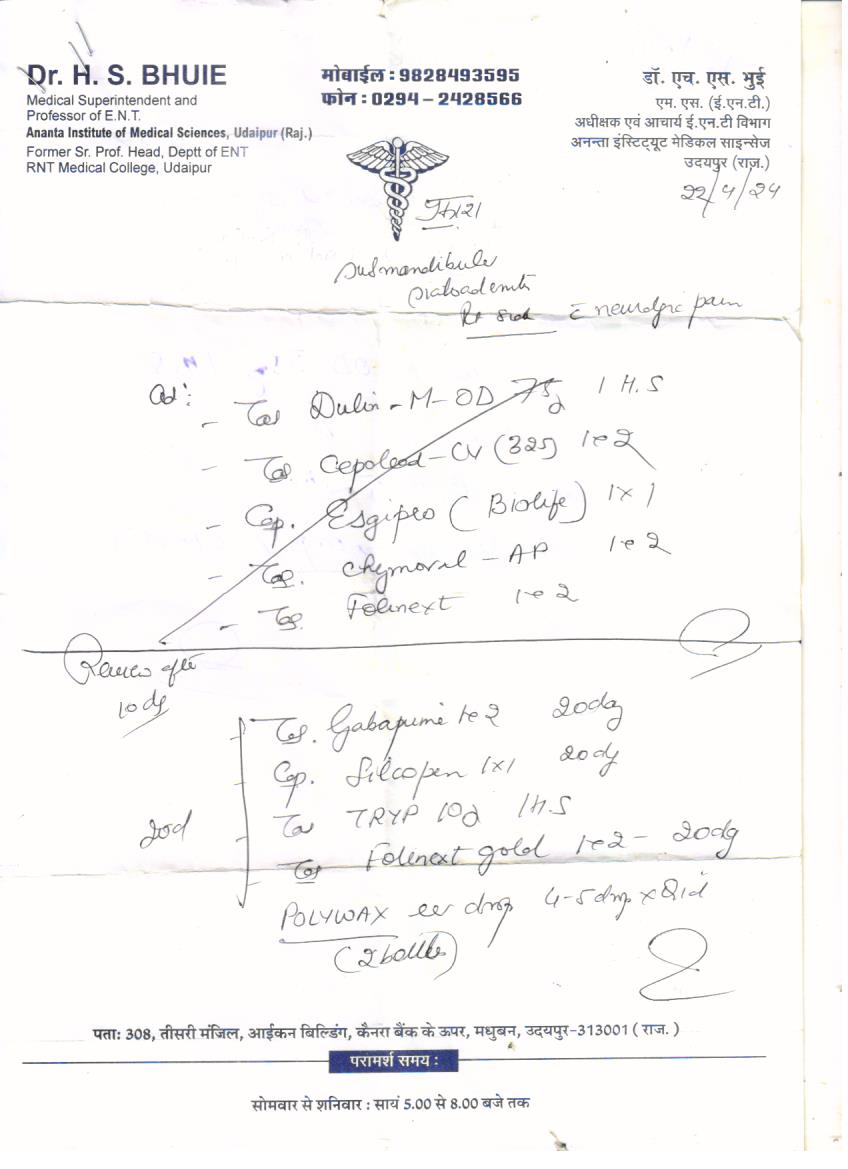 Dr. H. S. BHUIE
Medical Superintendent and
Professor of E.N.T.
Ananta Institute of Medical Sciences, Udaipur (Raj.)
Former Sr. Prof. Head, Deptt of ENT
RNT Medical College, Udaipur
मोबाईल : 9828493595
फोन : 0294 – 2428566
डॉ. एच. एस. भुई
एम. एस. (ई.एन.टी.)
अधीक्षक एवं आचार्य ई.एन.टी विभाग
अनन्ता इंस्टिट्यूट मेडिकल साइन्सेज
उदयपुर (राज.)
22/4/24
submandibule
neurolgic pain
Dulin - M - OD 75 1 H.S
- Cepoleod - CV (325) 1-e 2
- Cap. Esgipro (Biolife) 1x1
- Chymoral - AP 1-e 2
- Folinext 1-e 2
Review after
10 dy
Gabapime 1-e 2 20dy
Cap. Silcopen 1x1 20dy
20d
TRYP 10 1 H.S
Folinext gold 1-e 2 - 20dy
POLYWAX ear drop 4-5 drop x Qid
(2 bottles)
पता: 308, तीसरी मंजिल, आईकन बिल्डिंग, कैनरा बैंक के ऊपर, मधुबन, उदयपुर-313001 ( राज. )
परामर्श समय :
सोमवार से शनिवार : सायं 5.00 से 8.00 बजे तक